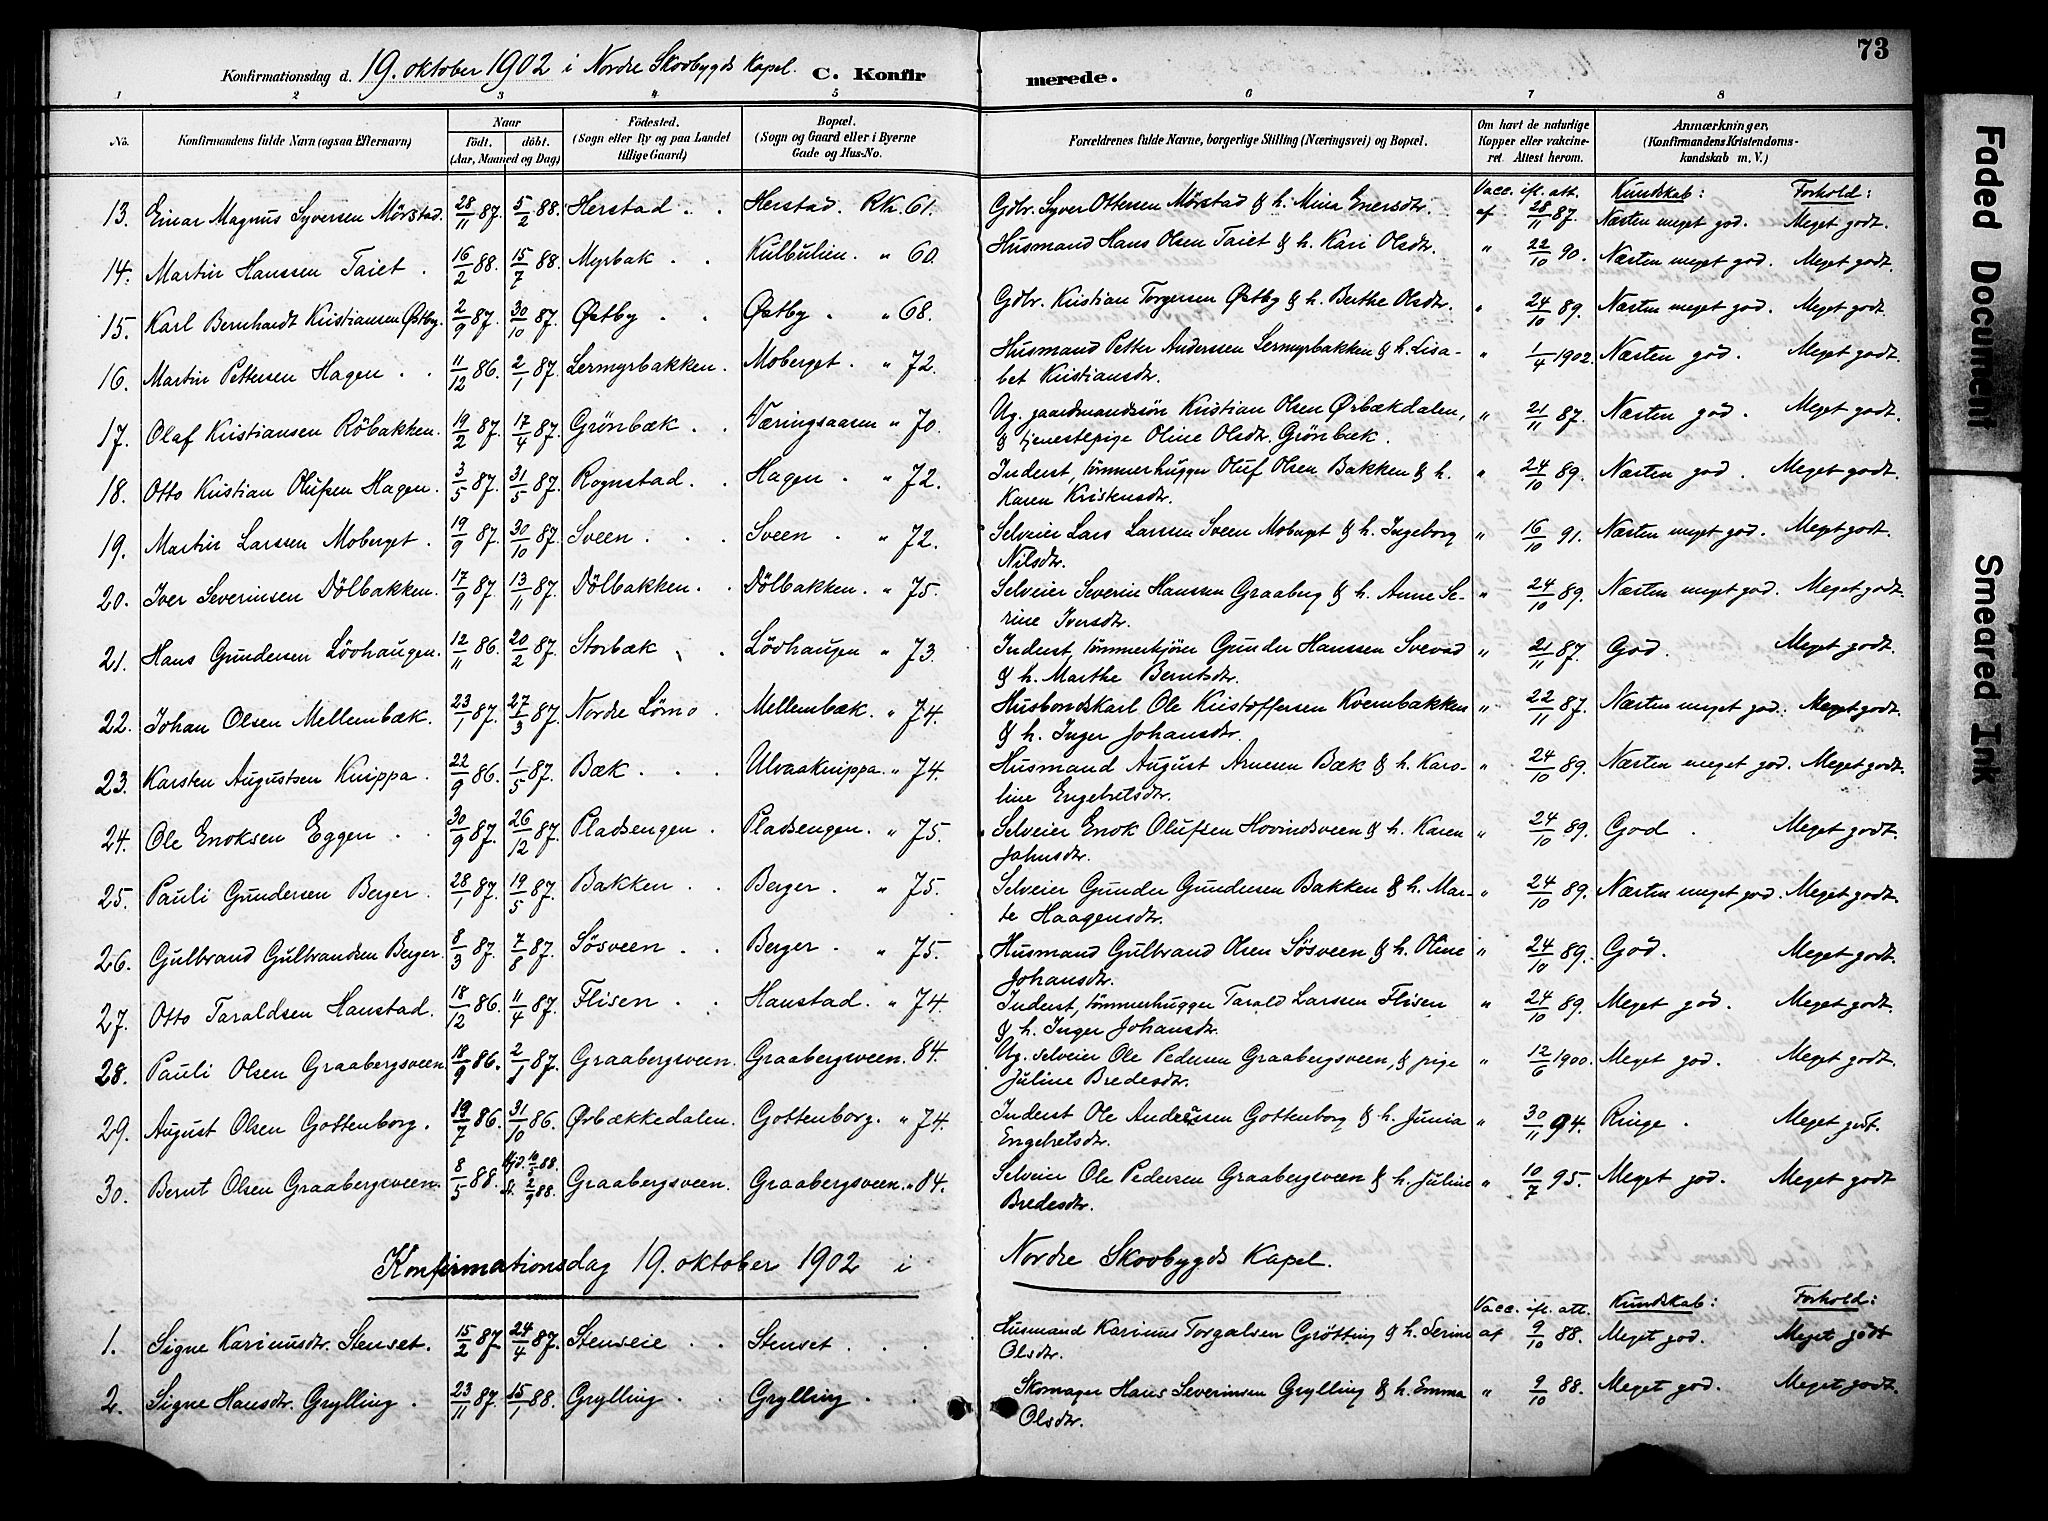 73
Konfirmationsdag d. 19. oktober 1902 i Nordre Skovbygds Kapel. C. Konfirmerede.
1 2 3 4 5 6 7 8
No. Konfirmandens fulde Navn (ogsaa Efternavn) Naar Födt. döbt. (Aar, Maaned og Dag) Födested. (Sogn eller By og paa Landet tillige Gaard) Bopæl. (Sogn og Gaard eller i Byerne Gade og Hus-No. Forældrenes fulde Navne, borgerlige Stilling (Næringsvei) og Bopæl. Om havt de naturlige Kopper eller vakcineret. Attest herom. Anmærkninger, (Konfirmandens Kristendomskundskab m. V.)
Vacc. ifl. att. Kundskab: Forhold:
13. Einar Magnus Syversen Mörstad. 28/11 87. 5/2 88. Herstad. Herstad. RK. 61. Gdbr. Syver Ottersen Mörstad & h. Mina Enersdtr. af 28/11 87. Næsten meget god. Meget godt.
14. Martin Hanssen Taiet. 16/2 88. 15/7 88. Myrbak. Kulbulien. " 60. Husmand Hans Olsen Taiet & h. Kari Olsdtr. " 22/10 90. Næsten meget god. Meget godt.
15. Karl Bernhardt Kristiansen Østby. 2/9 87. 30/10 87. Østby. Østby. " 68. Gdbr. Kristian Torgersen Østby & h. Berthe Olsdtr. " 24/10 89. Næsten meget god. Meget godt.
16. Martin Pettersen Hagen. 11/12 86. 2/1 87. Lermyrbakken. Moberget. " 72. Husmand Petter Anderssen Lermyrbakken & h. Lisa-
bet Kristiansdtr. " 1/4 1902. Næsten god. Meget godt.
17. Olaf Kristiansen Röbakken. 19/2 87. 17/4 87. Grönbæk. Væringsaasen " 70. Ug. gaardmandssön Kristian Olsen Ørbækdalen,
& tjenestepige Oline Olsdtr. Grönbæk. " 21/11 87. Næsten god. Meget godt.
18. Otto Kristian Olufsen Hagen. 3/5 87. 31/5 87. Rognstad. Hagen. " 72. Inderst, tömmerhugger Oluf Olsen Bakken & h.
Karen Kristensdtr. " 24/10 89. Næsten god. Meget godt.
19. Martin Larssen Moberget. 19/9 87. 30/10 87. Sveen. Sveen. " 72. Selveier Lars Larssen Sveen Moberget & h. Ingeborg
Nilsdtr. " 16/10 91. Næsten meget god. Meget godt.
20. Iver Severinsen Dölbakken. 17/9 87. 13/11 87. Dölbakken. Dölbakken. " 75. Selveier Severin Hanssen Graaberg & h. Anne Se-
rine Iversdtr. " 24/10 89. Næsten meget god. Meget godt.
21. Hans Gundersen Lövhaugen. 12/11 86. 20/2 87. Storbæk. Lövhaugen " 73. Inderst, tömmerkjörer Gunder Hanssen Svevad
& h. Marthe Berntsdtr. " 21/11 87. God. Meget godt.
22. Johan Olsen Mellembæk. 23/1 87. 27/3 87. Nordre Lömo. Mellembæk. " 74. Husbondskarl Ole Kristoffersen Kvernbakken
& h. Inger Johansdtr. " 22/11 87. Næsten meget god. Meget godt.
23. Karsten Augustsen Knippa. 22/9 86. 1/5 87. Bæk. Ulvaaknippa. " 74. Husmand August Arnesen Bæk & h. Karo-
line Engebretsdtr. " 24/10 89. Næsten meget god. Meget godt.
24. Ole Enoksen Eggen. 30/9 87. 26/12 87. Pladsengen. Pladsengen. " 75. Selveier Enok Olufsen Hovindsveen & h. Karen
Johnsdtr. " 24/10 89. God. Meget godt.
25. Pauli Gundersen Berger. 28/1 87. 19/5 87. Bakken. Berger. " 75. Selveier Gunder Gundersen Bakken & h. Mar-
te Haagensdtr. " 24/10 89. Næsten meget god. Meget godt.
26. Gulbrand Gulbrandsen Berger. 8/3 87. 7/8 87. Sösveen. Berger. " 75. Husmand Gulbrand Olsen Sösveen & h. Oline
Johansdtr. " 24/10 89. God. Meget godt.
27. Otto Taraldsen Hanstad. 18/12 86. 11/4 87. Flisen. Hanstad. " 74. Inderst, tömmerhugger Tarald Larssen Flisen
& h. Inger Johansdtr. " 24/10 89. Meget god. Meget godt.
28. Pauli Olsen Graabergsveen. 18/9 86. 2/1 87. Graabergsveen. Graabergsveen. 84. Ug. selveier Ole Pedersen Graabergsveen, & pige
Juline Bredesdtr. " 12/6 1900. Meget god. Meget godt.
29. August Olsen Gottenborg. 19/7 86. 31/10 86. Ørbækkedalen. Gottenborg. " 74. Inderst Ole Anderssen Gottenborg & h. Junia
Engebretsdtr. " 30/11 94. Ringe. Meget godt.
30. Bernt Olsen Graabergsveen. 8/5 88. Hjd. 10/5 88. St. 2/9 88. Graabergsveen. Graabergsveen. " 84. Selveier Ole Pedersen Graabergsveen & h. Juline
Bredesdtr. " 10/7 95. Meget god. Meget godt
Konfirmationsdag 19. oktober 1902 i Nordre Skovbygds Kapel.
Vacc. ifl. att. Kundskab: Forhold:
1. Signe Karinusdtr. Stenset. 15/2 87. 24/4 87. Stenseie. Stenset. Husmand Karinus Torgalsen Grötting & h. Serine
Olsdtr. af 9/10 88. Meget god. Meget godt
2. Signe Hansdtr. Grylling. 23/11 87. 15/1 88. Grylling. Grylling. Skomager Hans Severinsen Grylling & h. Emma
Olsdtr. " 9/10 88. Meget god. Meget godt.
Faded Document
Smeared Ink